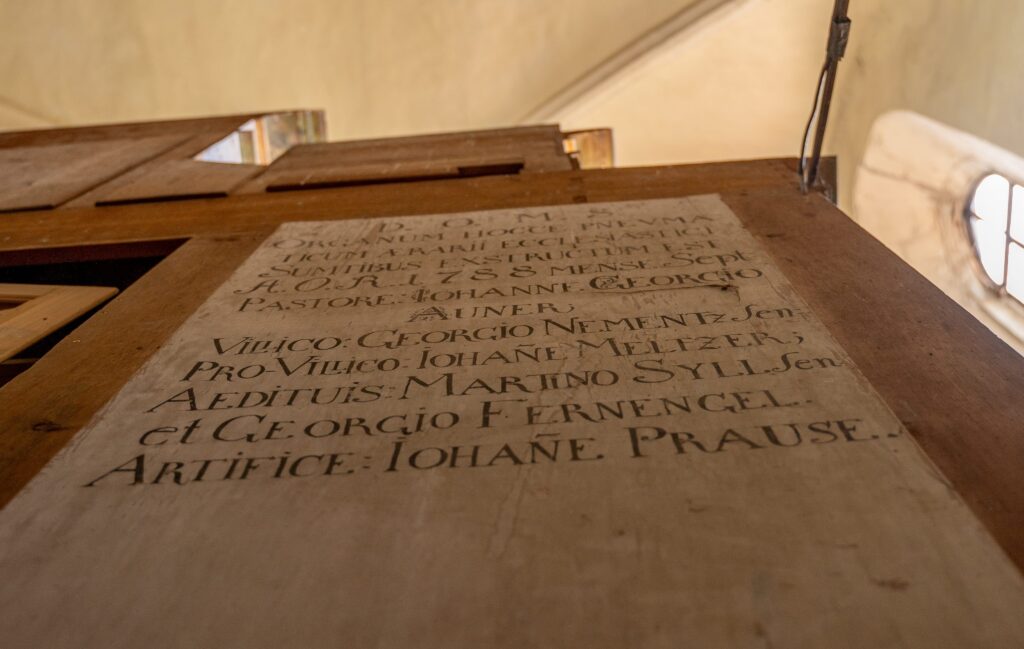 D. O. M. S.
ORGANUM HOCCE PNEVMA
TICUM ÆRARII ECCLESIASTICI
SUMTIBUS EXSTRUCTUM EST
A. O. R. 1788 MENSE Sept
PASTORE: IOHANNE GEORGIO
AUNER;
VILLICO: GEORGIO NEMENTZ Sen:
PRO-VILLICO: IOHAÑE MELTZER;
AEDITUIS: MARTINO SYLL Sen
et GEORGIO FERNENGEL.
ARTIFICE: IOHAÑE PRAUSE.